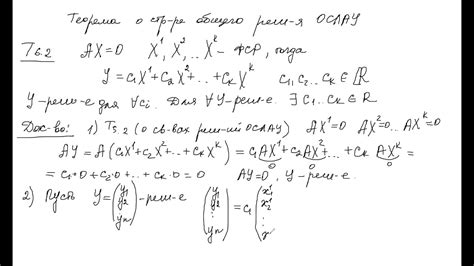 Теорема о стр-ре общего реш-я ОСЛАУ
T6.2 AX=0 X¹, X²,.. Xᴷ - ФСР, тогда
Y = C₁X¹+C₂X²+..+CₖXᴷ C₁,C₂..Cₖ∈ℝ
Y-реш-е для ∀Cᵢ. Для ∀Y-реш-е. ∃C₁..Cₖ∈ℝ
Док-во: 1) T5.2 (о св-вах реш-ий ОСЛАУ) AX¹=0 AX²=0... AXᴷ=0
AY = A(C₁X¹+C₂X²+..+CₖXᴷ) = C₁AX¹+C₂AX²+..+CₖAXᴷ =
0 0 0
= C₁·0+C₂·0+..+Cₖ·0=0 AY=0, Y-реш-е.
2) Пусть Y=(y₁ y₂ ⋮ yₙ) -реш-е (y₁ y₂ ⋮ yₙ) = C₁(x₁¹ x₂¹ ⋮ x